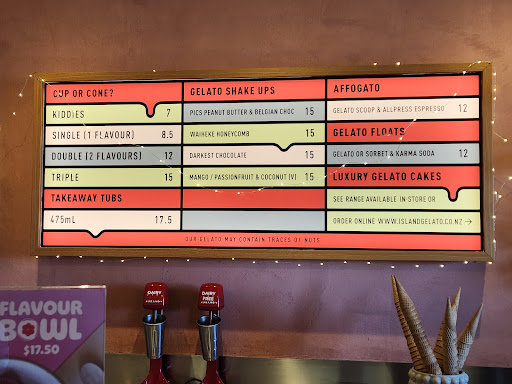 CUP OR CONE?
KIDDIES 7
SINGLE (1 FLAVOUR) 8.5
DOUBLE (2 FLAVOURS) 12
TRIPLE 15
TAKEAWAY TUBS
475mL 17.5
GELATO SHAKE UPS
PICS PEANUT BUTTER & BELGIAN CHOC 15
WAIHEKE HONEYCOMB 15
DARKEST CHOCOLATE 15
MANGO / PASSIONFRUIT & COCONUT (V) 15
AFFOGATO
GELATO SCOOP & ALLPRESS ESPRESSO 12
GELATO FLOATS
GELATO OR SORBET & KARMA SODA 12
LUXURY GELATO CAKES
SEE RANGE AVAILABLE IN-STORE OR
ORDER ONLINE WWW.ISLANDGELATO.CO.NZ →
OUR GELATO MAY CONTAIN TRACES OF NUTS
FLAVOUR
BOWL
$17.50
DAIRY
DAIRY
FREE